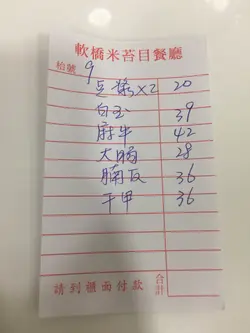 軟橋米苔目餐廳
枱號 9
豆漿×2 20
白玉 39
麻牛 42
大腸 28
腩反 36
干甲 36
請到櫃面付款 合計